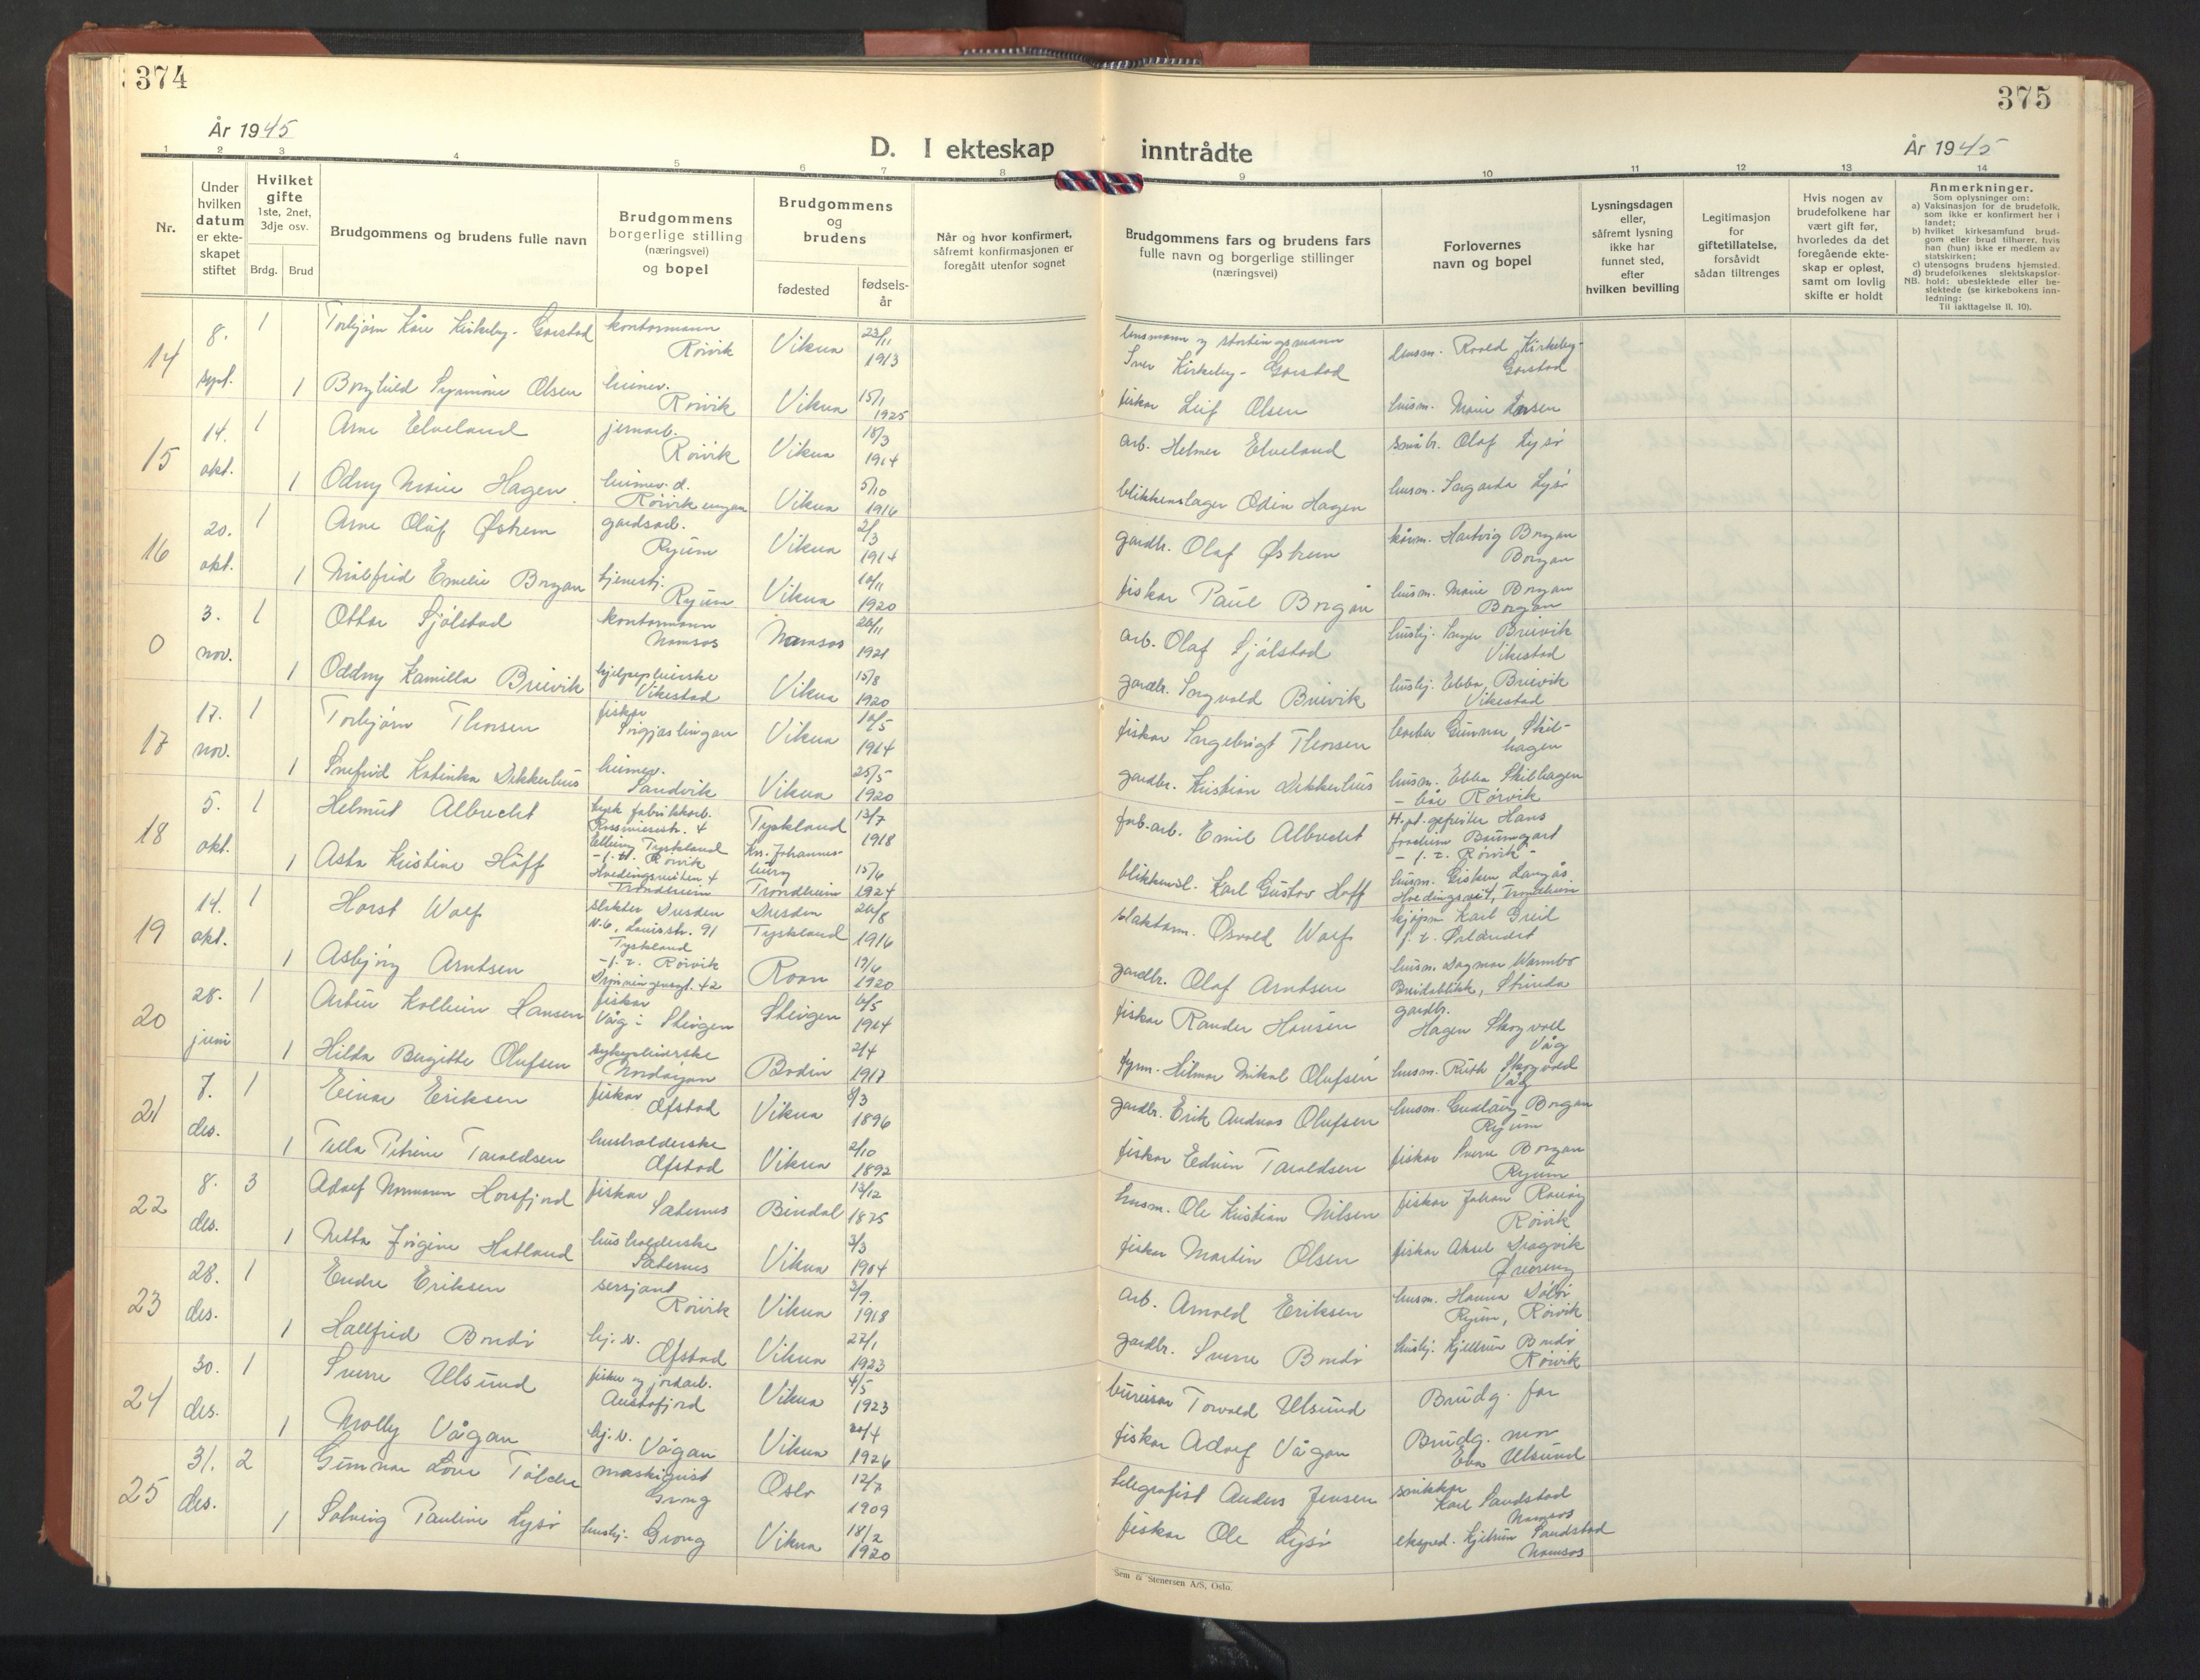 374
375
År 1945
D. I ekteskap inntrådte
År 1945
1 2 3 4 5 6 7 8 9 10 11 12 13 14
Nr.
Under hvilken datum er ekteskapet stiftet
Hvilket gifte 1ste, 2net, 3dje osv.
Brdg. Brud
Brudgommens og brudens fulle navn
Brudgommens borgerlige stilling (næringsvei) og bopel
Brudgommens og brudens
fødested
fødsels-år
Når og hvor konfirmert, såfremt konfirmasjonen er foregått utenfor sognet
Brudgommens fars og brudens fars fulle navn og borgerlige stillinger (næringsvei)
Forlovernes navn og bopel
Lysningsdagen eller, såfremt lysning ikke har funnet sted, efter hvilken bevilling
Legitimasjon for giftetillatelse, forsåvidt sådan tiltrenges
Hvis nogen av brudefolkene har vært gift før, hvorledes da det foregående ekteskap er opløst, samt om lovlig skifte er holdt
Anmerkninger.
Som oplysninger om:
a) Vaksinasjon for de brudefolk, som ikke er konfirmert her i landet;
b) hvilket kirkesamfund brudgom eller brud tilhører, hvis han (hun) ikke er medlem av statskirken;
c) utensogns brudens hjemsted.
d) brudefolkenes slektskapsforhold; ubeslektede eller beslektede (se kirkebokens innledning:
NB. Til iakttagelse II. 10).
14 8. sept. 1 Torbjørn Kåre Kirkeby-Garstad kontormann Rørvik Vikna 23/11 1913 lensmann og stortingsmann Iver Kirkeby-Garstad lensm. Roald Kirkeby-Garstad
1 Borghild Synnøve Olsen heimev. Rørvik Vikna 15/1 1925 fisker Leif Olsen husm. Marie
15 14. okt. 1 Arne Elveland jernarb. Rørvik Vikna 18/3 1914 arb. Helmer Elveland småbr. Olaf Lysø
1 Odny Marie Hagen heimev. d. Rørvik Vikna 5/10 1916 blikkenslager Odin Hagen husm. Lysø
16 20. okt. 1 Arne Oluf Østrem gardsarb. Ryum Vikna 2/3 1914 gardbr. Olaf Østrem Hartvig Borgan Borgan
1 Målfrid Emelie Borgan tjenestj. Ryum Vikna 10/11 1920 fisker Paul Borgan husm. Marie Borgan Borgan
0 3. nov. 1 Ottar Sjølstad kontormann Namsos Namsos 26/11 1921 arb. Olaf Sjølstad Breivik Vikestad
1 Oddny Kamilla Breivik hjelpepleierske Vikestad Vikna 15/8 1920 gardbr. Ingvald Breivik hushj. Ebba Breivik Vikestad
17 17. nov. 1 Torbjørn Thorsen fisker Vikna 10/5 1914 fisker Ingebrigt Thorsen Gunnar Skilhagen
1 Snefrid Katinka Dekkerhus heimev. Sandvik Vikna 25/5 1920 gardbr. Kristian Dekkerhus husm. Ebba Skilhagen Rørvik
18 5. okt. 1 Helmut Albrecht tysk fabrikkarb. Elbing Tyskland - f. t. Rørvik Tyskland 13/7 1918 fab.arb. Emil Albrecht Hans - f. t. Rørvik -
1 Asta Kristine Hoff Hvedingsveiten 4 Trondheim Trondheim 15/6 1924 blikkensl. Karl Gustav Hoff husm. Gisken Langås Hvedingsveit, Trondheim
19 14. okt. 1 Horst Wolf slakter Dresden N. 6, Louisstr. 91 Tyskland - f. t. Rørvik Dresden Tyskland 26/8 1916 slakterm. Osvald Wolf kjøpm. Karl Greil f. t. Ørlandet
1 Asbjørg Arntsen Roan 19/6 1920 gardbr. Olaf Arntsen husm. Dagmar Warmbo Breidablikk, Strinda
20 28. juni 1 Artur Kolbein Hansen fisker Våg i Steigen Steigen 6/5 1914 fisker Hansen gardbr. Hagen Skogvoll Våg
1 Hilda Bergitte Olufsen sykepleierske Bodin 2/4 1917 Hilmar Mikal Olufsen husm. Ruth Skogvold Våg
21 7. des. 1 Einar Eriksen fisker Ofstad Vikna 8/3 1896 gardbr. Erik Andreas Olufsen husm. Gudlaug Borgan Ryum
1 Tella Petrine Taraldsen husholderske Ofstad Vikna 2/10 1892 fisker Edvin Taraldsen fisker Sverre Borgan Ryum
22 8. des. 3 Adolf Normann Horsfjord fisker Sæternes Bindal 13/12 1875 husm. Ole Kristian Nilsen fisker Johan Rørvik
1 Netta Jørgine Hatland husholderske Sæternes Vikna 3/3 1904 fisker Martin Olsen fisker Aksel Dragvik
23 28. des. 1 Endre Eriksen sersjant Rørvik Vikna 3/9 1918 arb. Arnold Eriksen husm. Hanna Ryum, Rørvik
1 Hallfrid Bondø hj. v. Ofstad Vikna 22/1 1923 gardbr. Sverre Bondø hushj. Kjellrun Bondø Rørvik
24 30. des. 1 Sverre Ulsund fisker og jordarb. Austafjord Vikna 4/5 1923 bureiser Torvald Ulsund Brudg. far
1 Molly Vågan hj. v. Vågan Vikna 20/4 1926 fisker Adolf Vågan Brudg. mor Eva Ulsund
25 31. des. 2 Gunnar maskinist Grong Oslo 12/7 1909 telegrafist Anders Jensen snikker Karl Sandstad Namsos
1 Solveig Pauline Lysø hushj. Grong Vikna 18/2 1920 fisker Ole Lysø eksped. Kjellrun Sandstad Namsos
Sem & Stenersen A/S, Oslo.